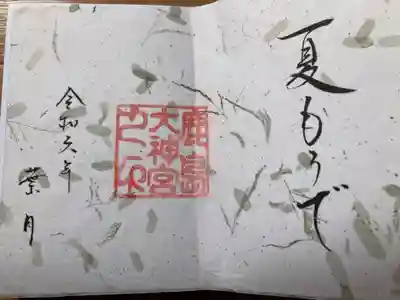 夏もうで
鹿島
大神宮
令和六年
葉月